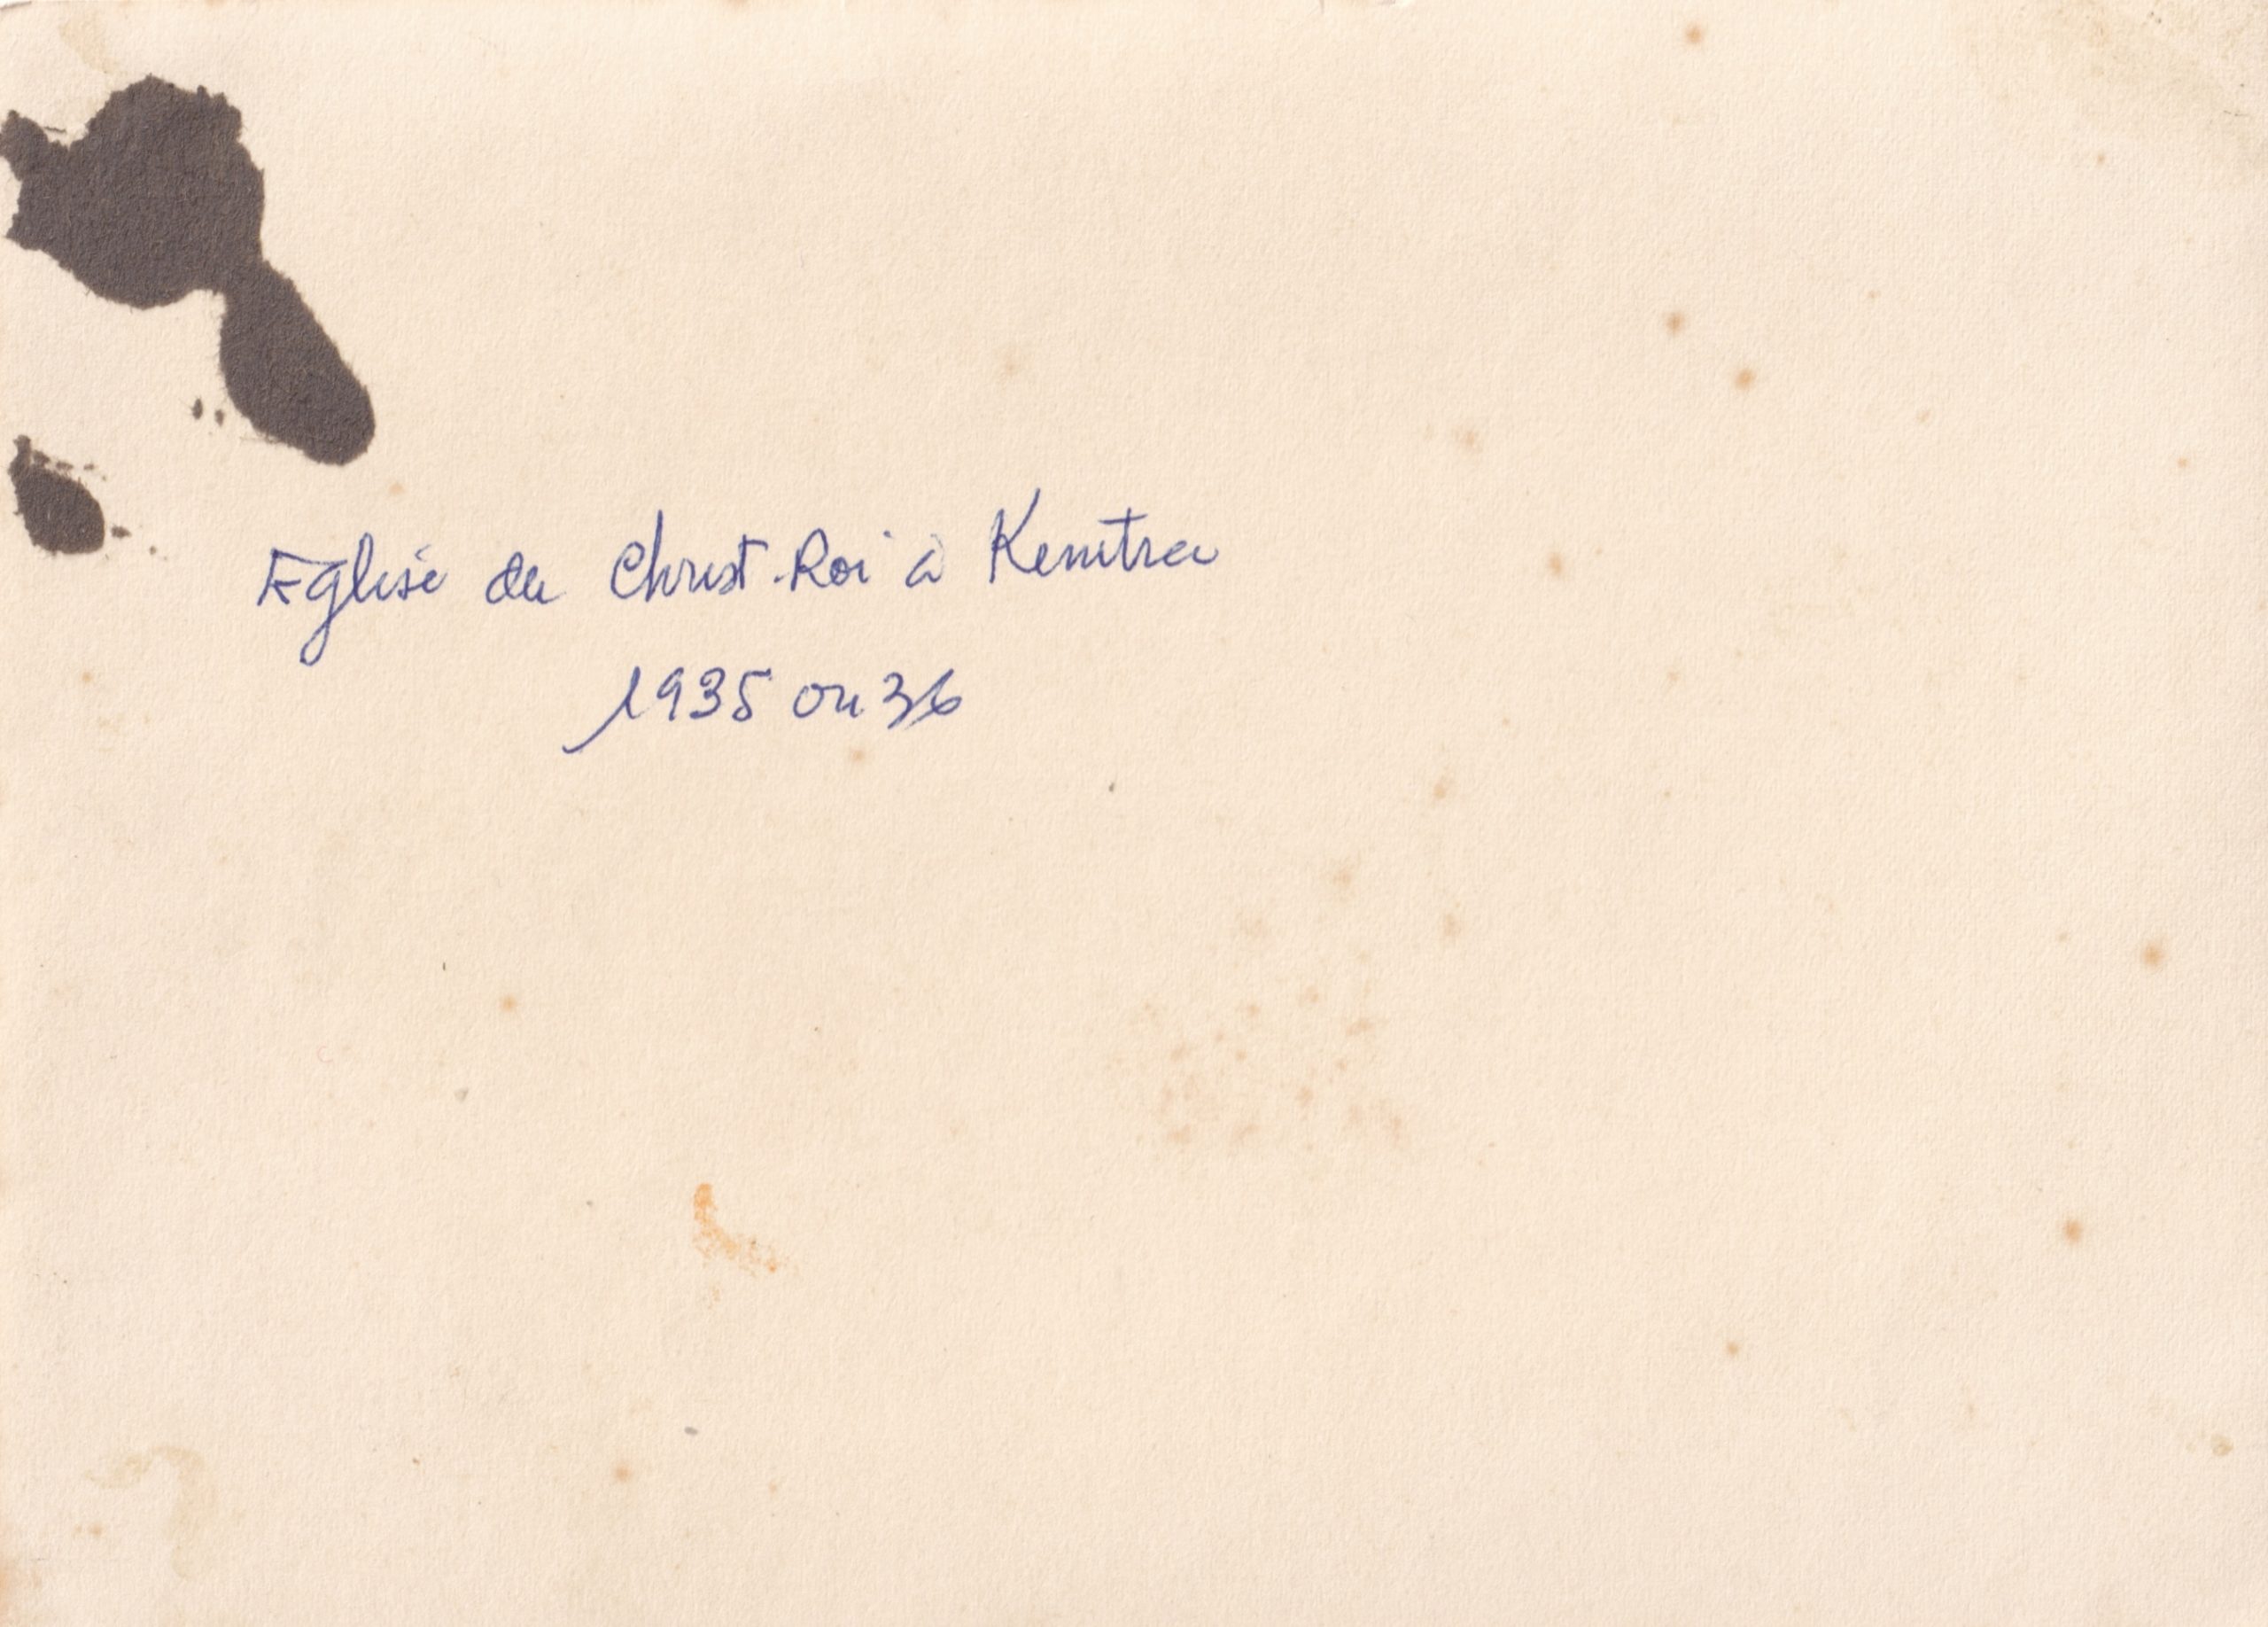 Eglise du Christ-Roi à Kenitra
1935 ou 36